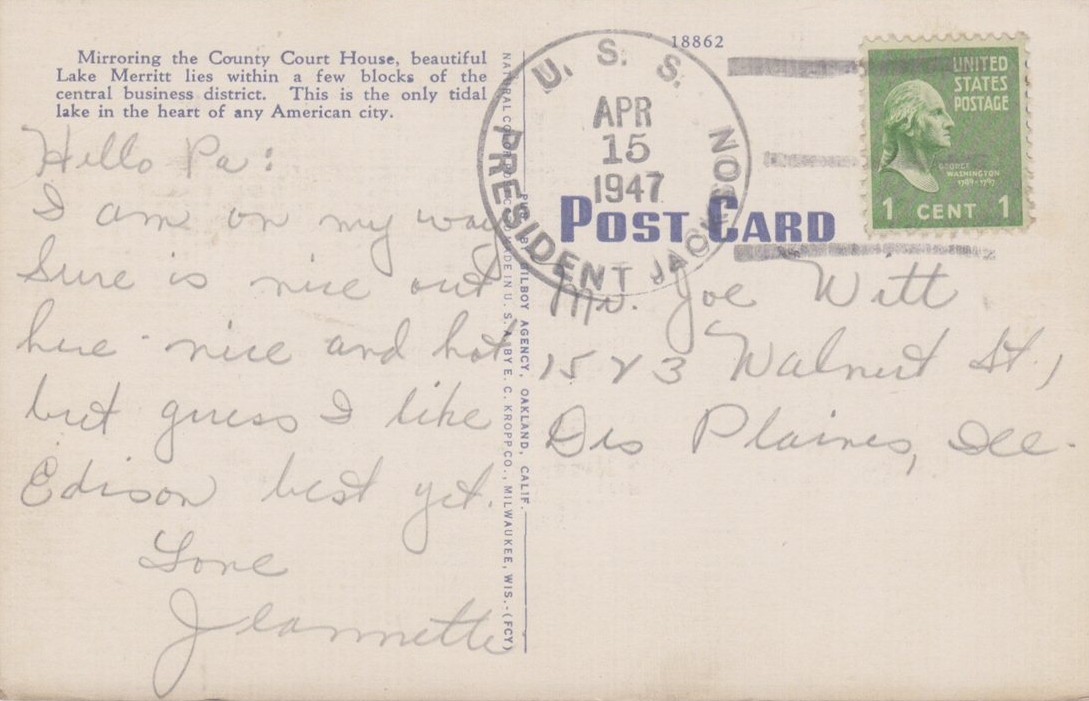 Mirroring the County Court House, beautiful
Lake Merritt lies within a few blocks of the
central business district. This is the only tidal
lake in the heart of any American city.
Hello Pa:
I am on my way
Sure is nice out
here nice and hot
but guess I like
Edison best yet.
Love
Jeannette
NATURAL COLOR
MADE IN U. S. A. BY E. C. KROPP CO., MILWAUKEE, WIS.-(FCY)
PUB. BY GILBOY AGENCY, OAKLAND, CALIF.
18862
U. S. S. PRESIDENT JACKSON
APR
15
1947
POST CARD
UNITED
STATES
POSTAGE
GEORGE
WASHINGTON
1789-1797
1 CENT 1
Mr. Joe Witt
1523 Walnut St.,
Des Plaines, Ill.